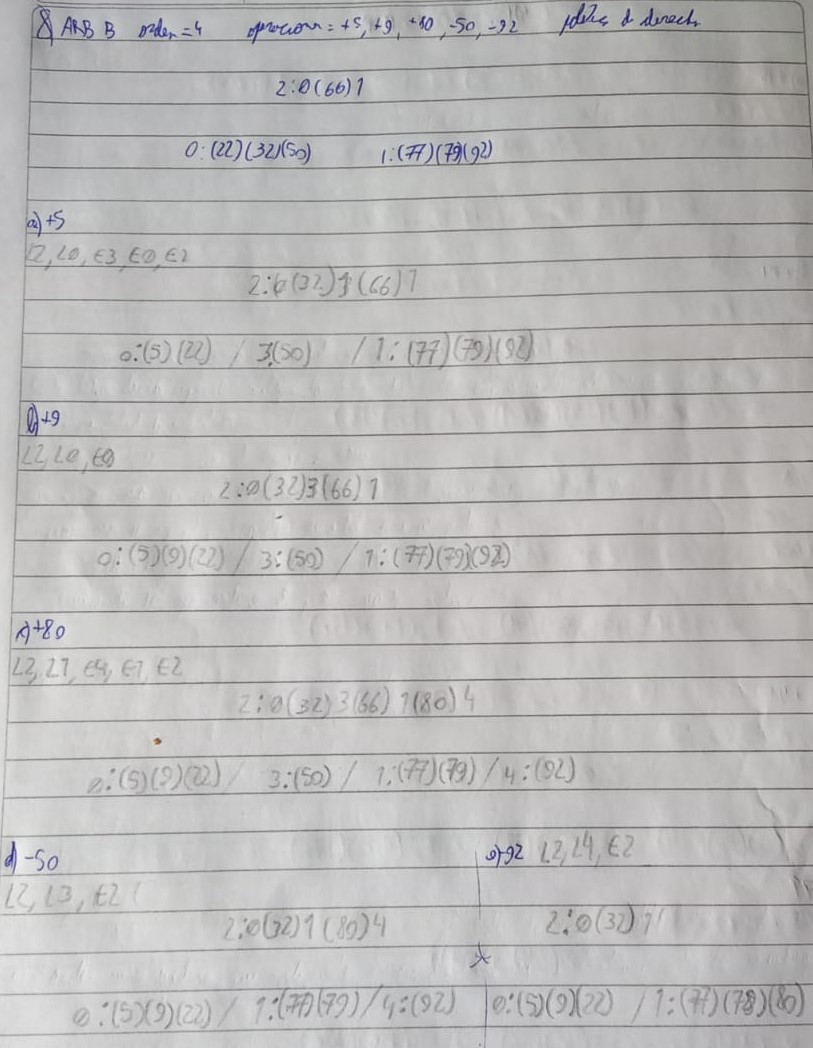 8) ARB B orden=4 operaciones=+5,+9,+80,-50,-92 política de derecha
2:0(66)1
0:(22)(32)(50) 1:(77)(79)(92)
a)+5
L2,L0,E3,E0,E2
2:0(32)3(66)1
0:(5)(22) / 3(50) / 1:(77)(79)(92)
b)+9
L2,L0,E0
2:0(32)3(66)1
0:(5)(9)(22) / 3:(50) / 1:(77)(79)(92)
c)+80
L2,L1,E4,E1,E2
2:0(32)3(66)1(80)4
0:(5)(9)(22) / 3:(50) / 1:(77)(79) / 4:(92)
d)-50
L2,L3,E2
2:0(32)1(80)4
0:(5)(9)(22) / 1:(77)(79) / 4:(92)
e)-92 L2,L4,E2
2:0(32)1
*
0:(5)(9)(22) / 1:(77)(79)(80)